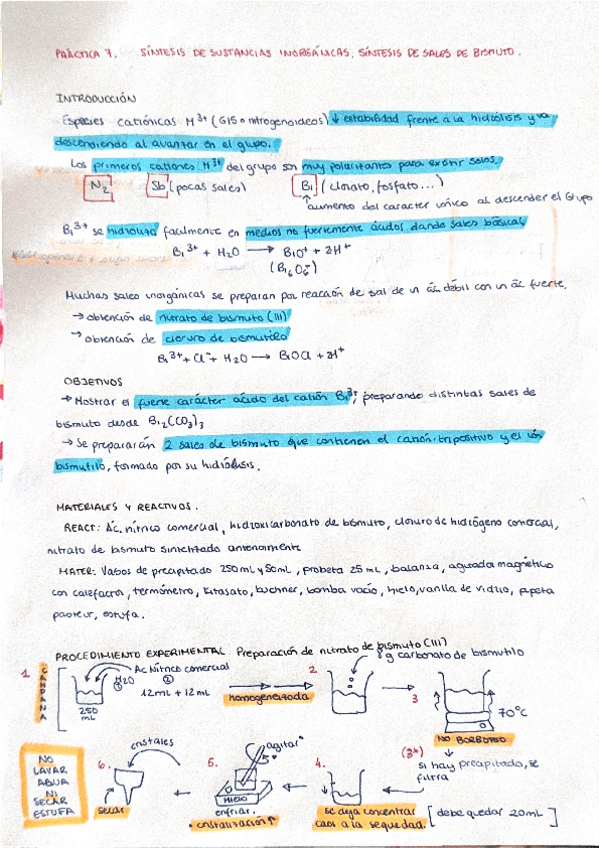 PRÁCTICA 7. SÍNTESIS DE SUSTANCIAS INORGÁNICAS. SÍNTESIS DE SALES DE BISMUTO.
INTRODUCCIÓN
Especies catiónicas M³⁺ (G15 o nitrogenoideos) ↓ estabilidad frente a la hidrólisis y va
descendiendo al avanzar en el grupo.
Los primeros cationes M³⁺ del grupo son muy polarizantes para existir solos.
N₂ Sb (pocas sales) Bi (clorato, fosfato...)
↑ aumento del caracter iónico al descender el Grupo
Bi³⁺ se hidroliza facilmente en medios no fuertemente ácidos dando sales básicas
Bi³⁺ + H₂O → BiO⁺ + 2H⁺
Muchas sales inorgánicas se preparan por reacción de sal de un ác. débil con un ác fuerte.
→ obtención de nitrato de bismuto (III)
→ obtención de cloruro de bismutilo
Bi³⁺ + Cl⁻ + H₂O → BiOCl + 2H⁺
OBJETIVOS
→ Mostrar el fuerte carácter ácido del catión Bi³⁺, preparando distintas sales de
bismuto desde Bi₂(CO₃)₃
→ Se prepararán 2 sales de bismuto que contienen el catión tripositivo y el ión
bismutilo, formado por su hidrólisis.
MATERIALES Y REACTIVOS.
REACT: Ác. nítrico comercial, hidroxicarbonato de bismuto, cloruro de hidrógeno comercial,
nitrato de bismuto sintetizado anteriormente
MATER: Vasos de precipitado 250 mL y 50 mL, probeta 25 mL, balanza, agitador magnético
con calefactor, termómetro, kitasato, buchner, bomba vacío, hielo, varilla de vidrio, pipeta
pasteur, estufa.
PROCEDIMIENTO EXPERIMENTAL Preparación de nitrato de bismuto (III)
1 CAMPANA
H₂O ① Ac Nítrico comercial ②
12 mL + 12 mL
250 mL
homogeneizada
2
8g carbonato de bismutilo
3
70°C
NO BORBOTEO
(3*)
si hay precipitado, se
filtra
4.
se deja concentrar
casi a la sequedad. [debe quedar 20 mL]
5.
agitar
HIELO
enfriar.
• cristalización ↑
6.
cristales
secar
NO
LAVAR
AGUA
NI
SECAR
ESTUFA